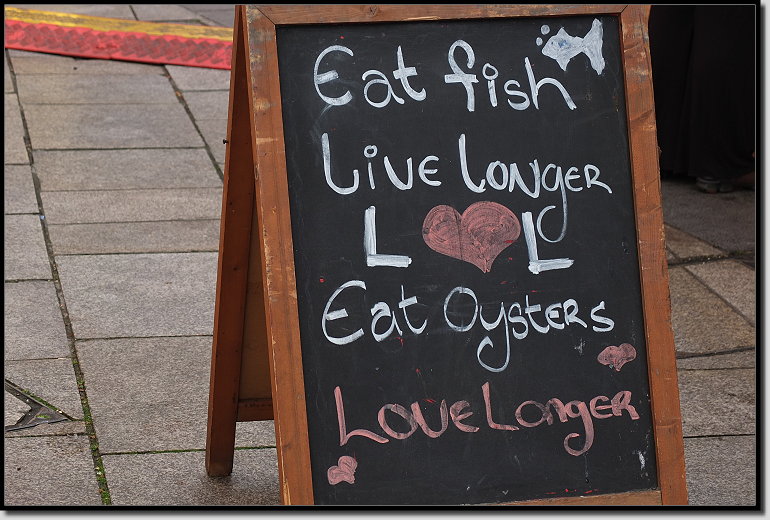 Eat fish
Live Longer
L L
Eat Oysters
Love Longer